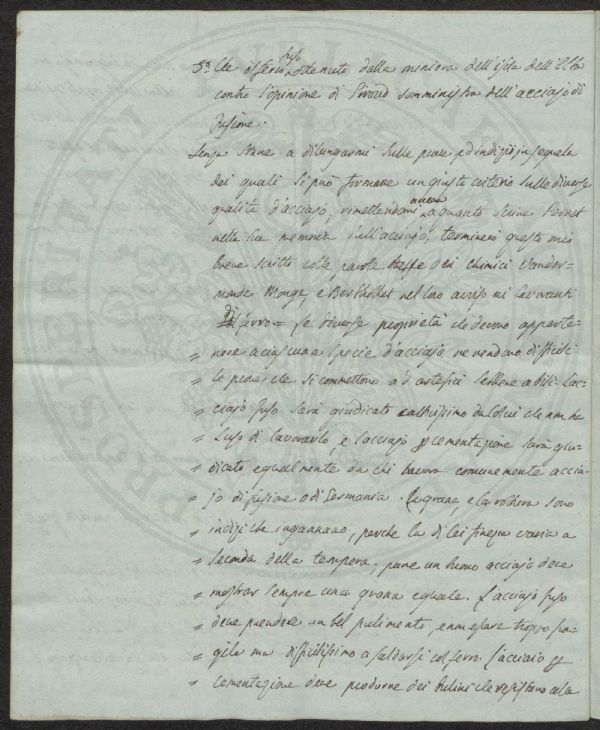 5.ª Che il ferro fuso ottenuto dalla miniera dell'isola dell'Elba
contro l'opinione di somministra dell'acciajo di
fusione.
Senza stare a dilungarmi sulle prove, ed indizj, in sequela
dei quali si può formare un giusto criterio sulle diverse
qualità d'acciajo, rimettendomi ancora a quanto scrive Perret
nella sua memoria sull'acciajo, terminerò questo mio
breve scritto colle parole stesse dei chimici Vander-
monde Monge, e Berthollet nel loro avviso ai lavoranti
di ferro = le diverse proprietà che devono apparte-
= nere a ciascuna specie d'acciajo ne rendono difficili
= le prove che si commettono ad artefici sebbene abili. L'ac-
= ciajo fuso sarà giudicato cattivissimo da colui che non ha
= l'uso di lavorarlo, e l'acciajo p cementazione sarà giu-
= dicato egualmente da chi lavora comunemente accia-
= jo di fusione o di Germania. La grana, e la rottura sono
= indizi che ingannano, perchè la di lei finezza varia a
= seconda della tempera, pure un buono acciajo deve
= mostrar sempre una grana eguale. L'acciajo fuso
= deve prendere un bel pulimento, e non essere troppo fra-
= gile ma difficilissimo a saldarsi col ferro. L'acciaio p
= cementazione deve produrre dei bulini che resistano alla